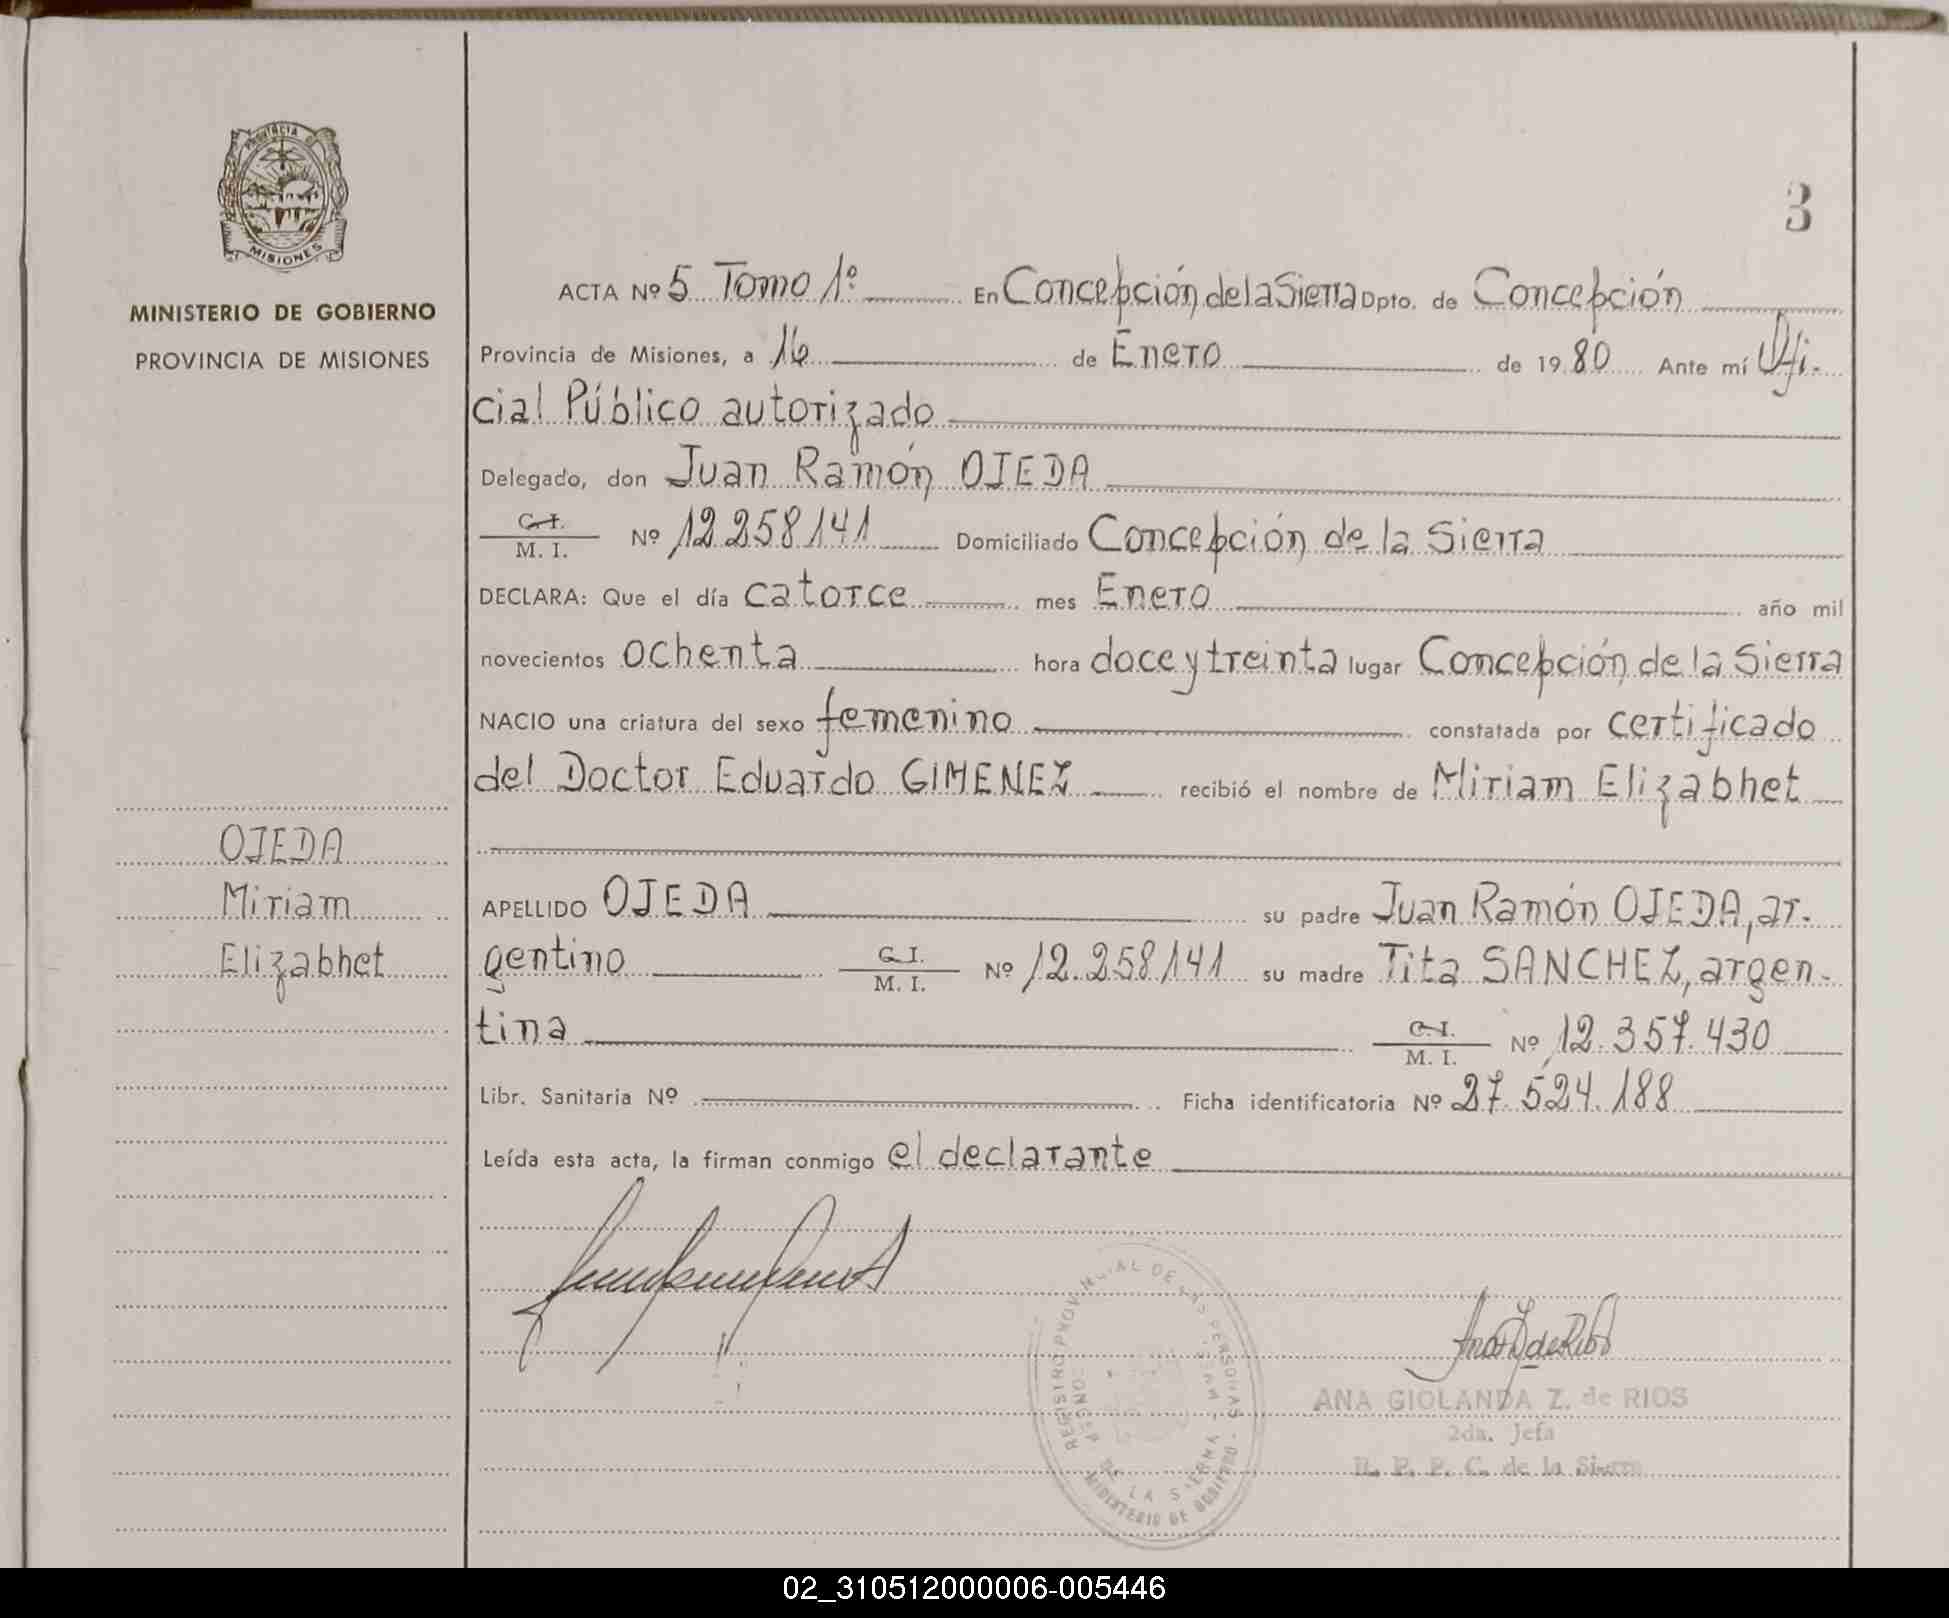 PROVINCIA DE
MISIONES
MINISTERIO DE GOBIERNO
PROVINCIA DE MISIONES
OJEDA
Miriam
Elizabhet
3
ACTA Nº 5 Tomo 1º En Concepción de la Sierra Dpto. de Concepción
Provincia de Misiones, a 16 de Enero de 1980 Ante mí Ofi-
cial Público autorizado
Delegado, don Juan Ramón OJEDA
C. I.
M. I.
Nº 12.258.141 Domiciliado Concepción de la Sierra
DECLARA: Que el día catorce mes Enero año mil
novecientos ochenta hora doce y treinta lugar Concepción de la Sierra
NACIO una criatura del sexo femenino constatada por certificado
del Doctor Eduardo GIMENEZ recibió el nombre de Miriam Elizabhet
APELLIDO OJEDA su padre Juan Ramón OJEDA, ar-
gentino C. I. / M. I. Nº 12.258.141 su madre Tita SANCHEZ, argen-
tina C. I. / M. I. Nº 12.357.430
Libr. Sanitaria Nº Ficha identificatoria Nº 27.524.188
Leída esta acta, la firman conmigo el declarante
REGISTRO PROVINCIAL DE LAS PERSONAS
MINISTERIO DE GOBIERNO
DE LA SIERRA
Ana G Z de Rios
ANA GIOLANDA Z. de RIOS
2da. Jefa
R. P. P. C. de la Sierra
02_310512000006-005446